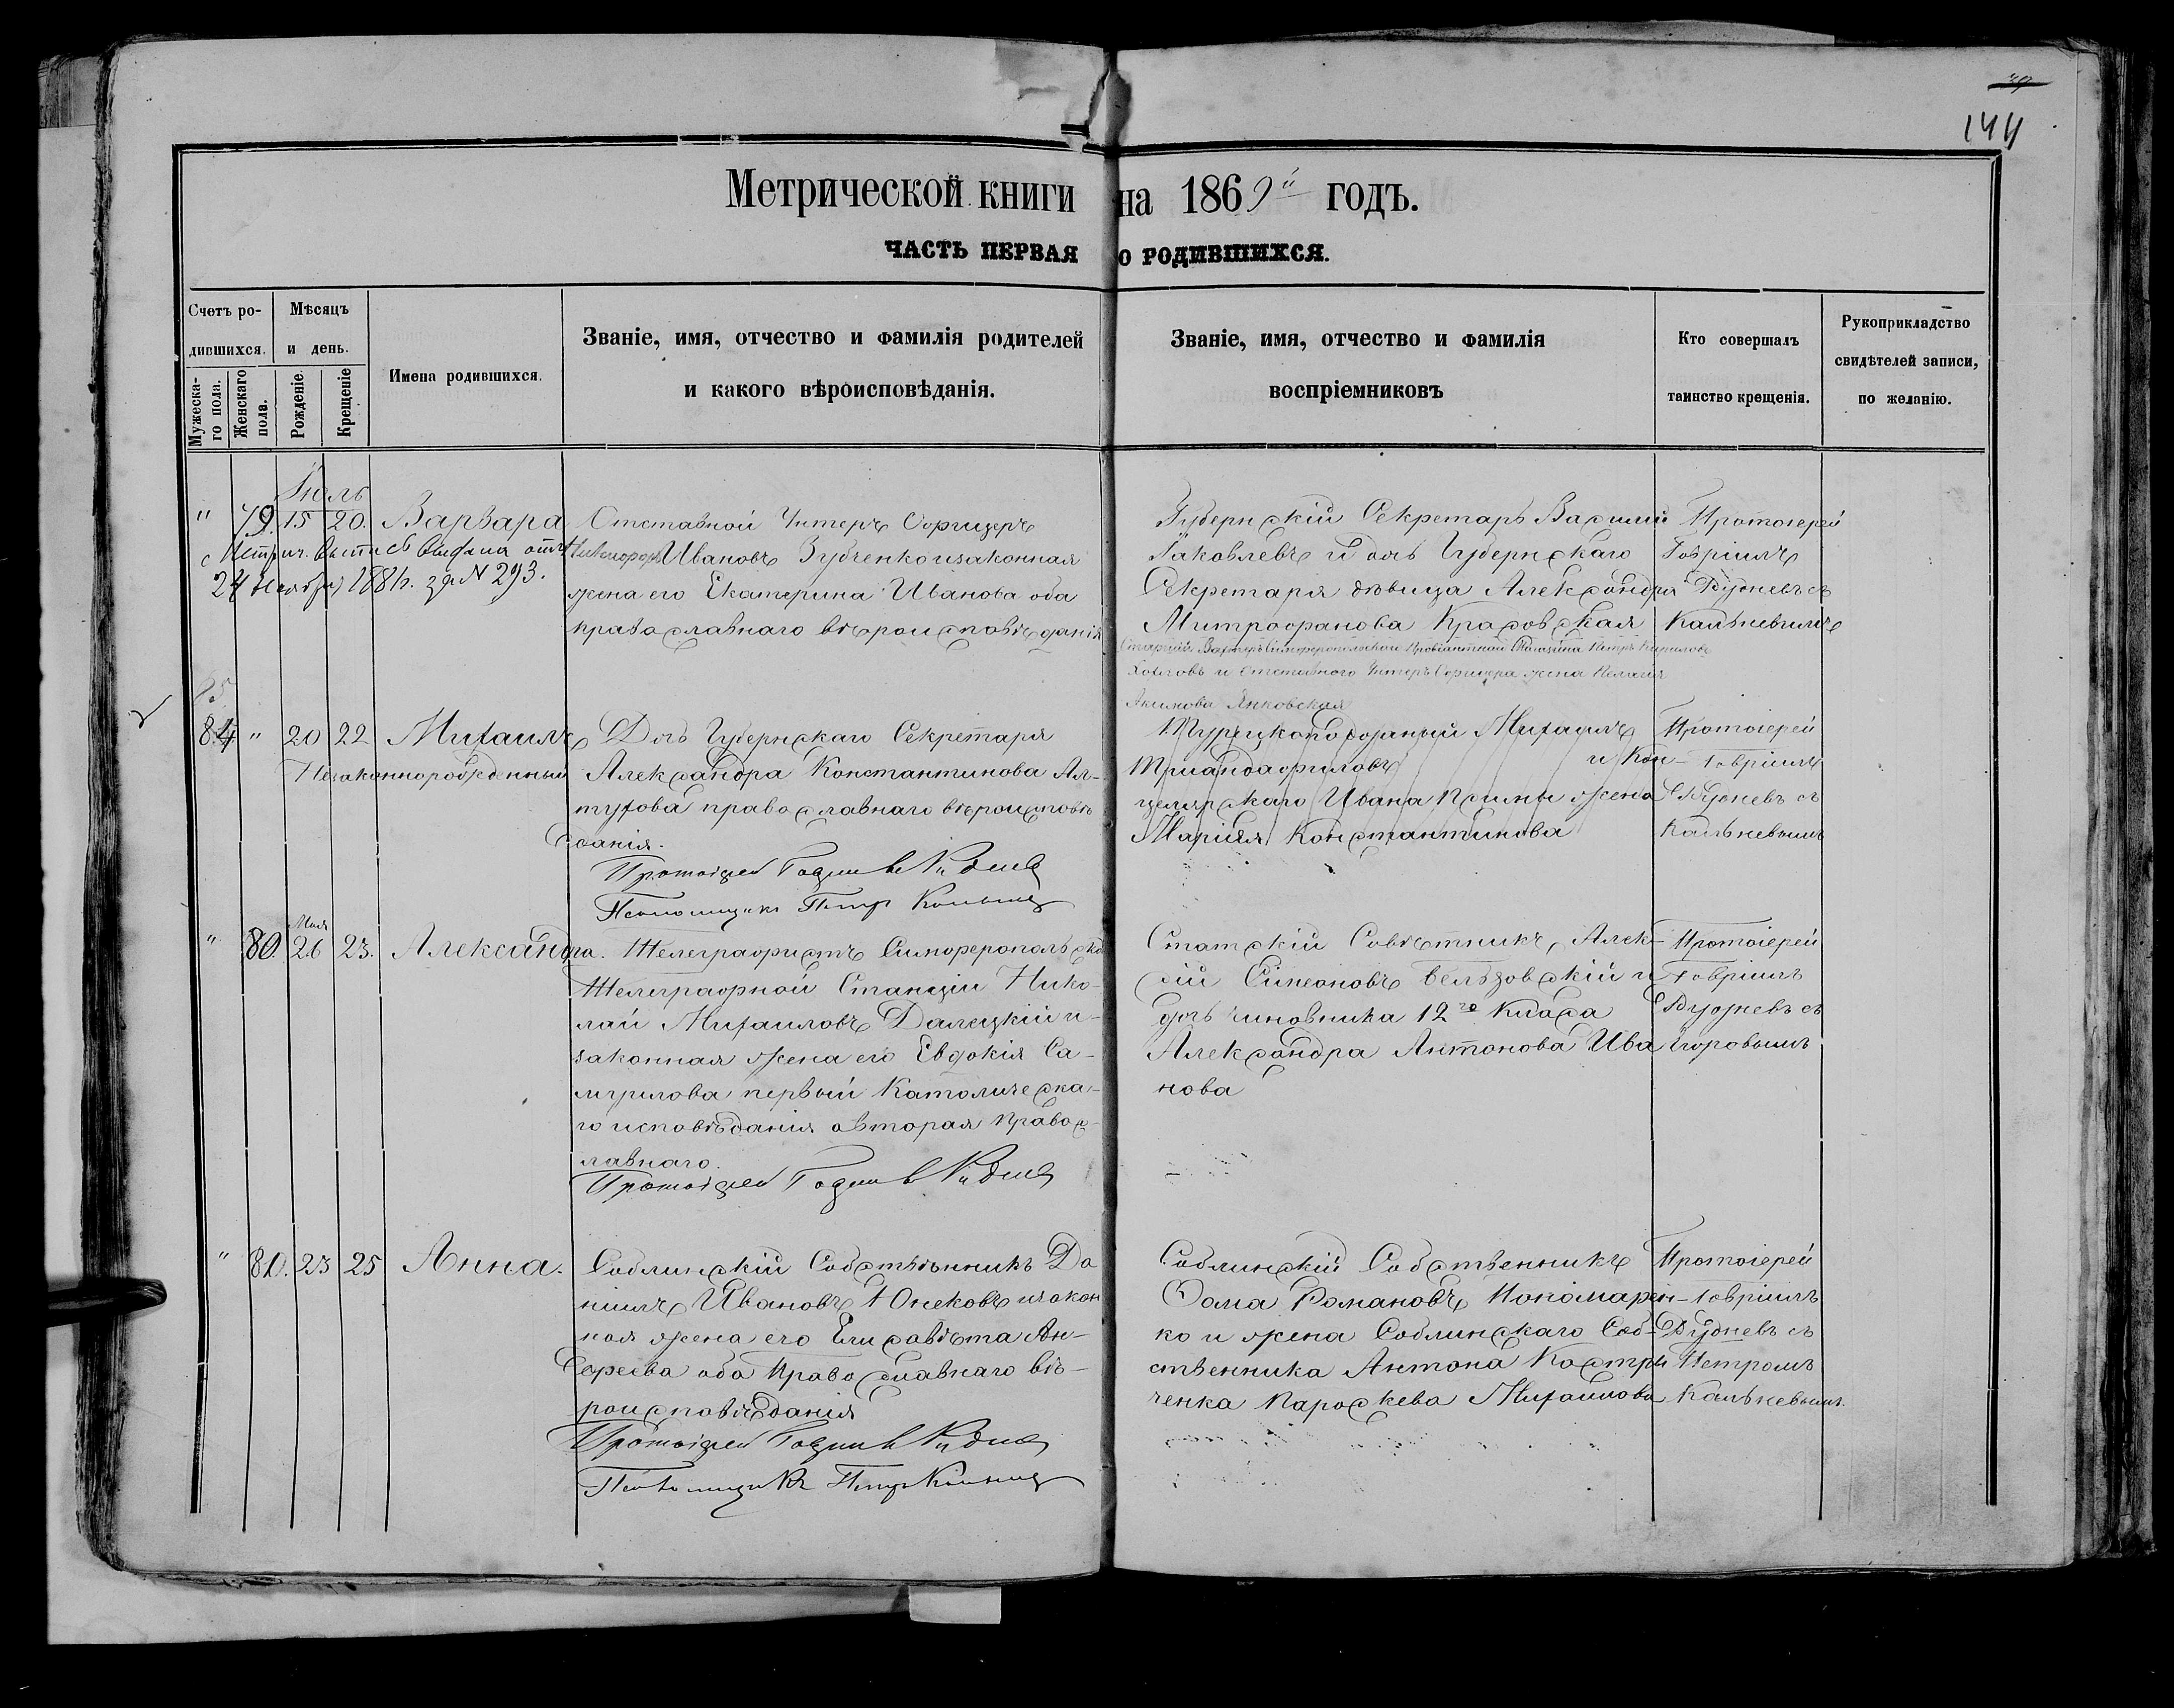 39
144
Метрической книги на 1869й годъ.
ЧАСТЬ ПЕРВАЯ О РОДИВШИХСЯ.
Счетъ родившихся.
Мужескаго пола.
Женскаго пола.
Мѣсяцъ и день.
Рожденіе.
Крещеніе
Имена родившихся.
Званіе, имя, отчество и фамилія родителей
и какого вѣроисповѣданія.
Званіе, имя, отчество и фамилія
воспріемниковъ
Кто совершалъ
таинство крещенія.
Рукоприкладство
свидѣтелей записи,
по желанію.
Іюль
" 79. 15 20. Варвара
24 Ноября 1881г. за N 293.
Отставной Унтеръ Офицеръ
Ивановъ Зубченко изаконная
жена его Екатерина Иванова оба
православнаго вѣроисповѣданія
Губернскій Секретарь Василій
Яковлевъ и дочь Губернскаго
Секретаря дѣвица Александра
Митрофанова Красовская
Протоіерей
Гавріилъ
Рудневъ съ
Кальневымъ
Старшій Вахтеръ Симферопольскаго Провіантскаго Магазина Петръ Кириловъ
и Отставного Унтеръ Офицера жена Пелагія
Акимова Янковская
85
84 " 20 22 Михаилъ
Незаконнорожденный
Дочь Губернскаго Секретаря
Александра Константинова Ал-
тухова православнаго вѣроисповѣ
данія.
Протоіерей Гавріилъ Рудневъ
Псаломщикъ Петръ Кальневъ
Турецкоподданный Михаилъ
Тріандафиловъ и Кан-
целярскаго Ивана жена
Марія Константинова
Протоіерей
Гавріилъ
Рудневъ съ
Кальневымъ
Мая
" 80. 26 23. Александра.
Телеграфистъ Симферопольской
Телеграфной Станціи Нико-
лай Михаиловъ Далецкій и
законная жена его Евдокія Са-
муилова первый Католическа-
го исповѣданія авторая Правос-
лавнаго.
Протоіерей Гавріилъ Рудневъ
Статскій Совѣтникъ, Алек-
сій Симеоновъ Бельзовскій и
дочь чиновника 12го Класа
Александра Антонова Ива
нова
Протоіерей
Гавріилъ
Рудневъ съ
" 81. 23 25 Анна.
Саблинскій Собственникъ Да
ніилъ Ивановъ изакон
ная жена его Елисавѣта Ан-
дреева оба Православнаго вѣ-
роисповѣданія
Протоіерей Гавріилъ Рудневъ
Псаломщикъ Петръ Кальневъ
Саблинскій Собственникъ
Фома Романовъ Пономарен-
ко и жена Саблинскаго Соб-
ственника Антона Костри
ченка Параскева Михаилова
Протоіерей
Гавріилъ
Рудневъ съ
Петромъ
Кальневымъ.